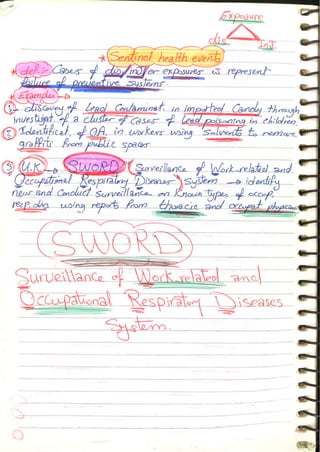 Exposure
dis Inj
* Sentinel health events
* def:- Cases of dis/inj/or exposures is represent
failure of preventive systems
* Examples:-
1- discovey of Lead Contaminat. in imported Candy through
investigat. of a cluster of cases of Lead poisoning in children
2- Identificat. of OA. in workers using Solvents to remove
graffiti from public spaces
3- U.K → SWORD (Surveillance of Work-related and
Occupational Respiratory Diseases) System → identify
new and Conduct surveillance on Known types of occup.
resp. dis using reports from thoracic and occupat physician
SWORD
Surveillance of Work related and
Occupational Respiratory Diseases
System.